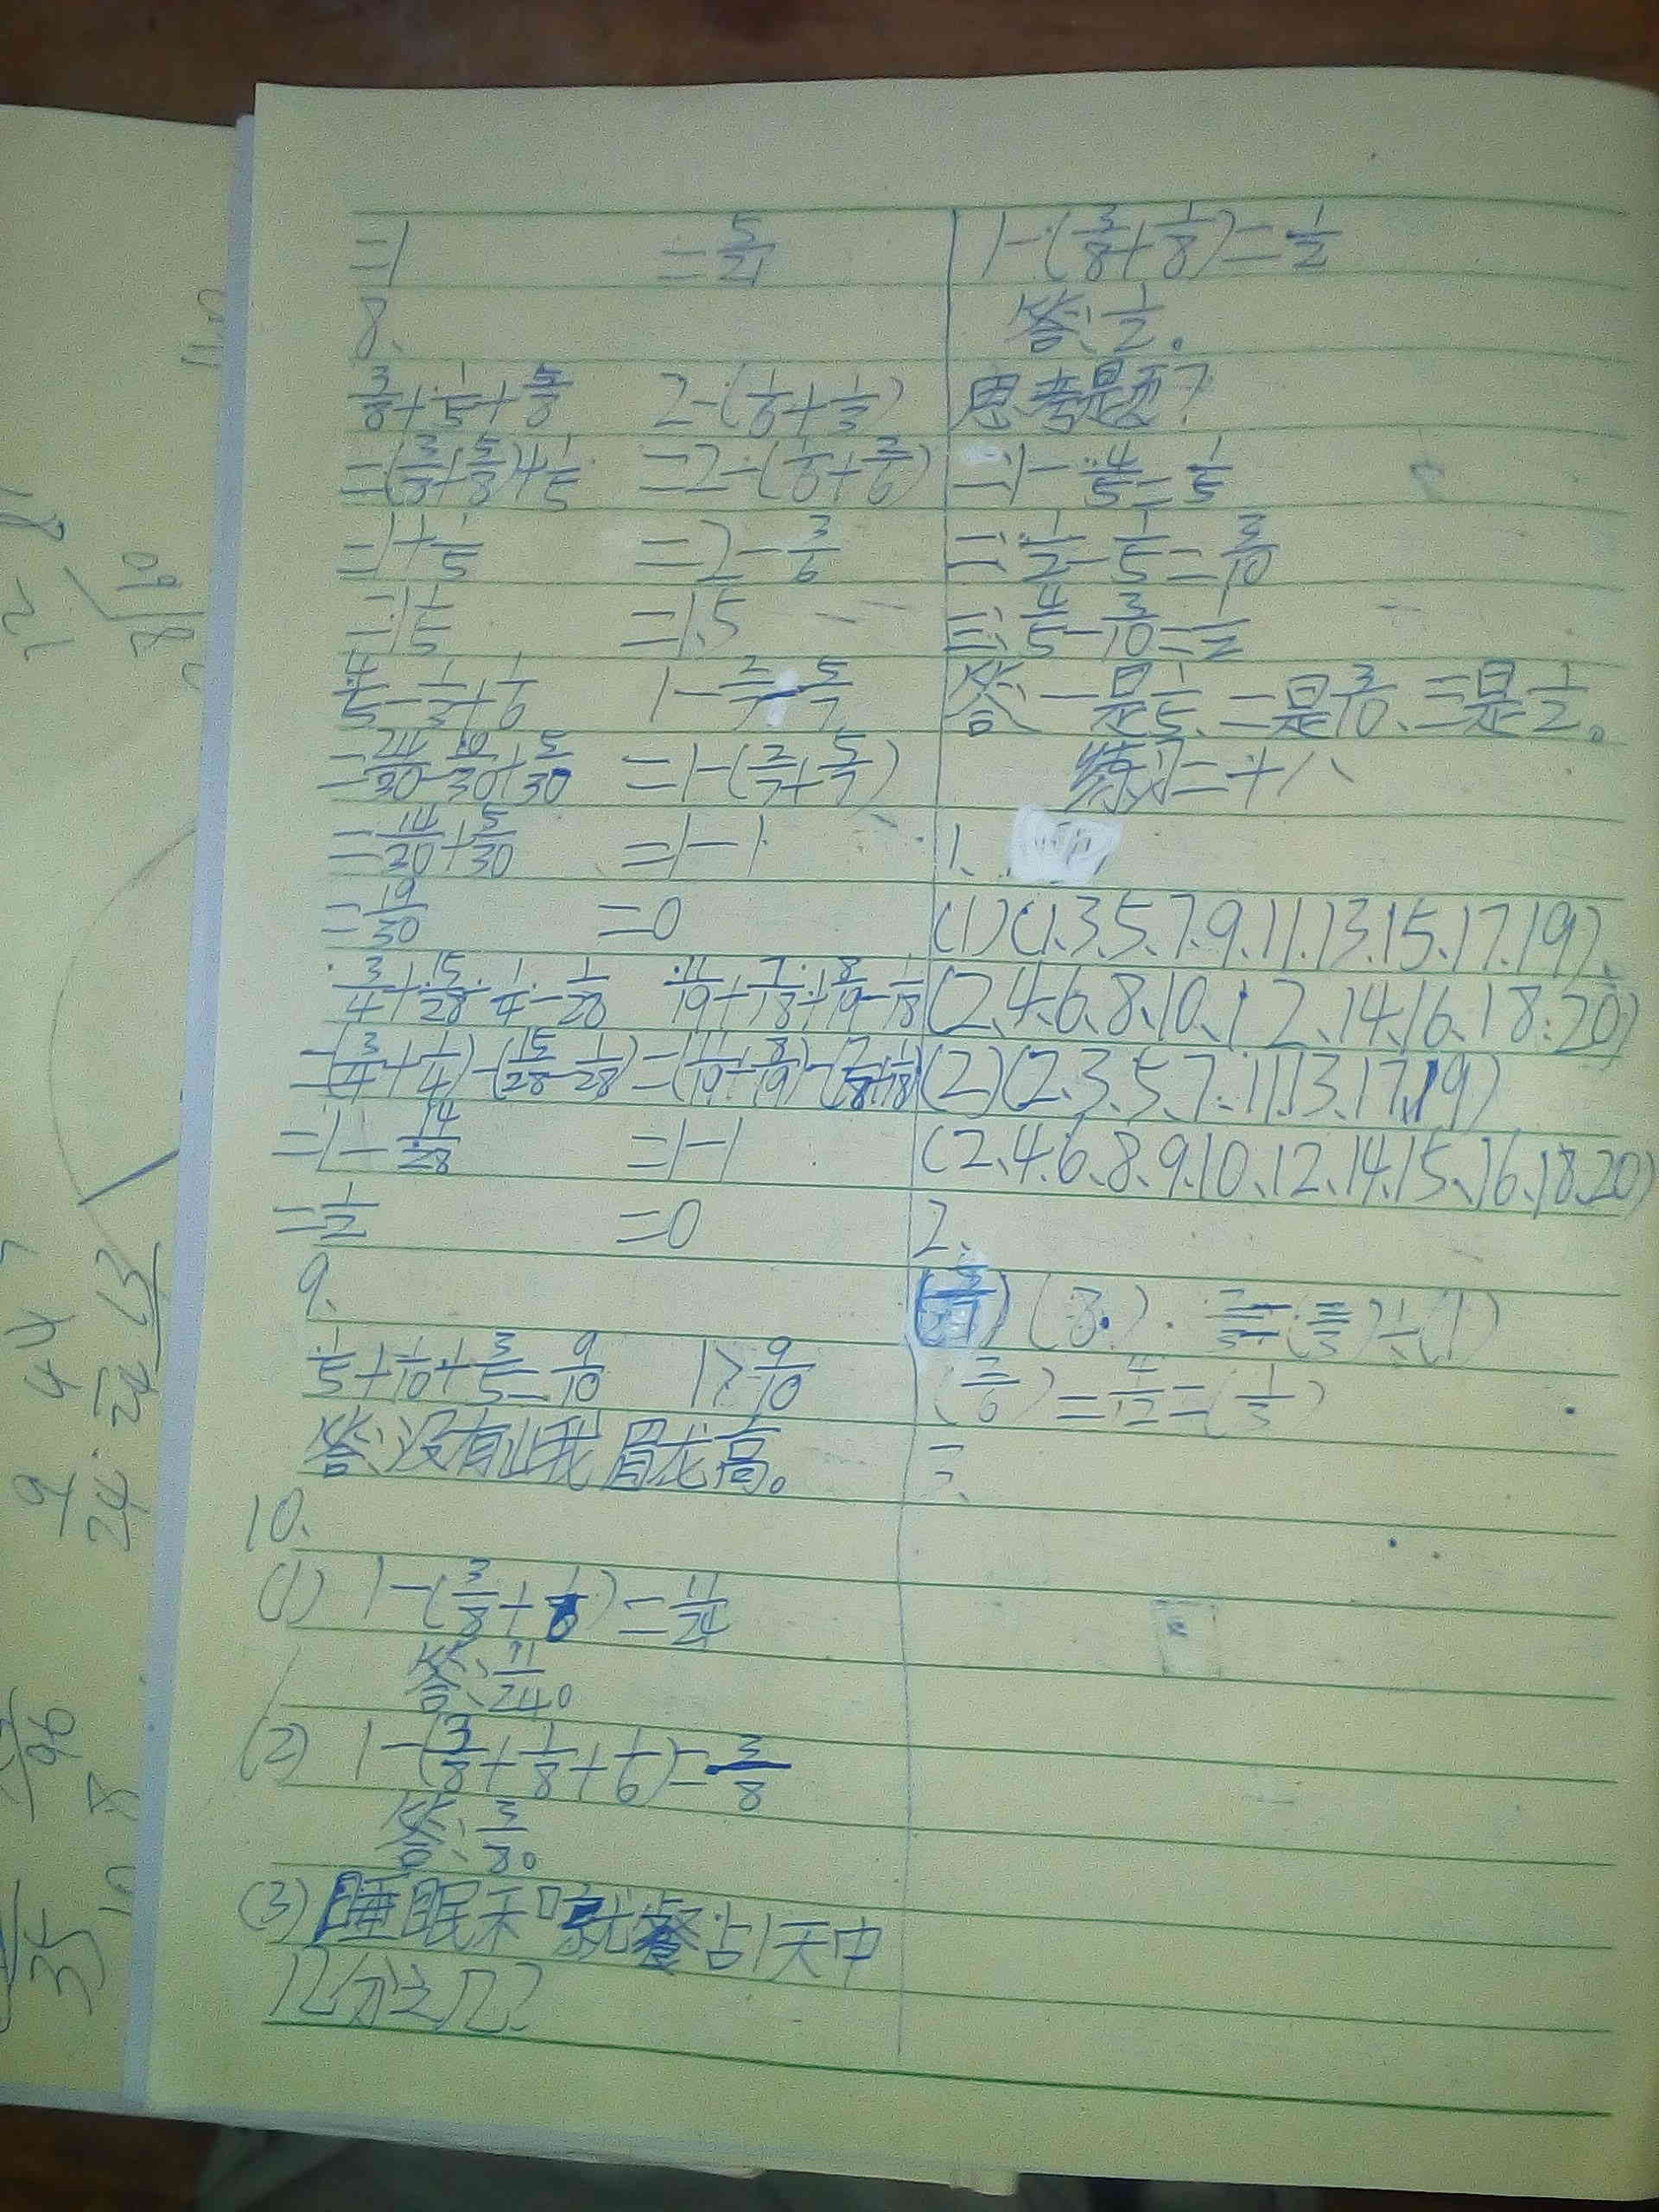 =1 =5/21
8、
3/8+1/5+5/8 2-(1/6+1/3)
=(3/8+5/8)+1/5 =2-(1/6+2/6)
=1+1/5 =2-3/6
=1 1/5 =1.5
4/5-1/3+1/6 1-2/7-5/7
=24/30-10/30+5/30 =1-(2/7+5/7)
=14/20+5/30 =1-1
=19/30 =0
3/4+15/28+1/4-1/28 11/19+7/18+8/19-1/18
=(3/4+1/4)-(15/28-1/28) =(11/19+8/19)-(7/18+1/18)
=1-14/28 =1-1
=1/2 =0
9、
1/5+1/10+3/5=9/10 1>9/10
答:没有山我眉龙高。
10、
(1) 1-(3/8+1/6)=11/24
答:11/24。
(2) 1-(3/8+1/8+1/6)=3/8
答:3/8。
(3)睡眠和就餐占1天中
几分之几?
1-(3/8+1/8)=1/2
答:1/2。
思考题?
一:1-4/5=1/5
二:1/2-1/5=3/10
三:4/5-3/10=1/2
答:一是1/5、二是3/10、三是1/2。
练习二十八
1、
(1)(1、3、5、7、9、11、13、15、17、19)、
(2、4、6、8、10、12、14、16、18、20)
(2)(2、3、5、7、11、13、17、19)
(2、4、6、8、9、10、12、14、15、16、18、20)
2、
(3) (1)
(2/6)=4/12=(1/3)
三、